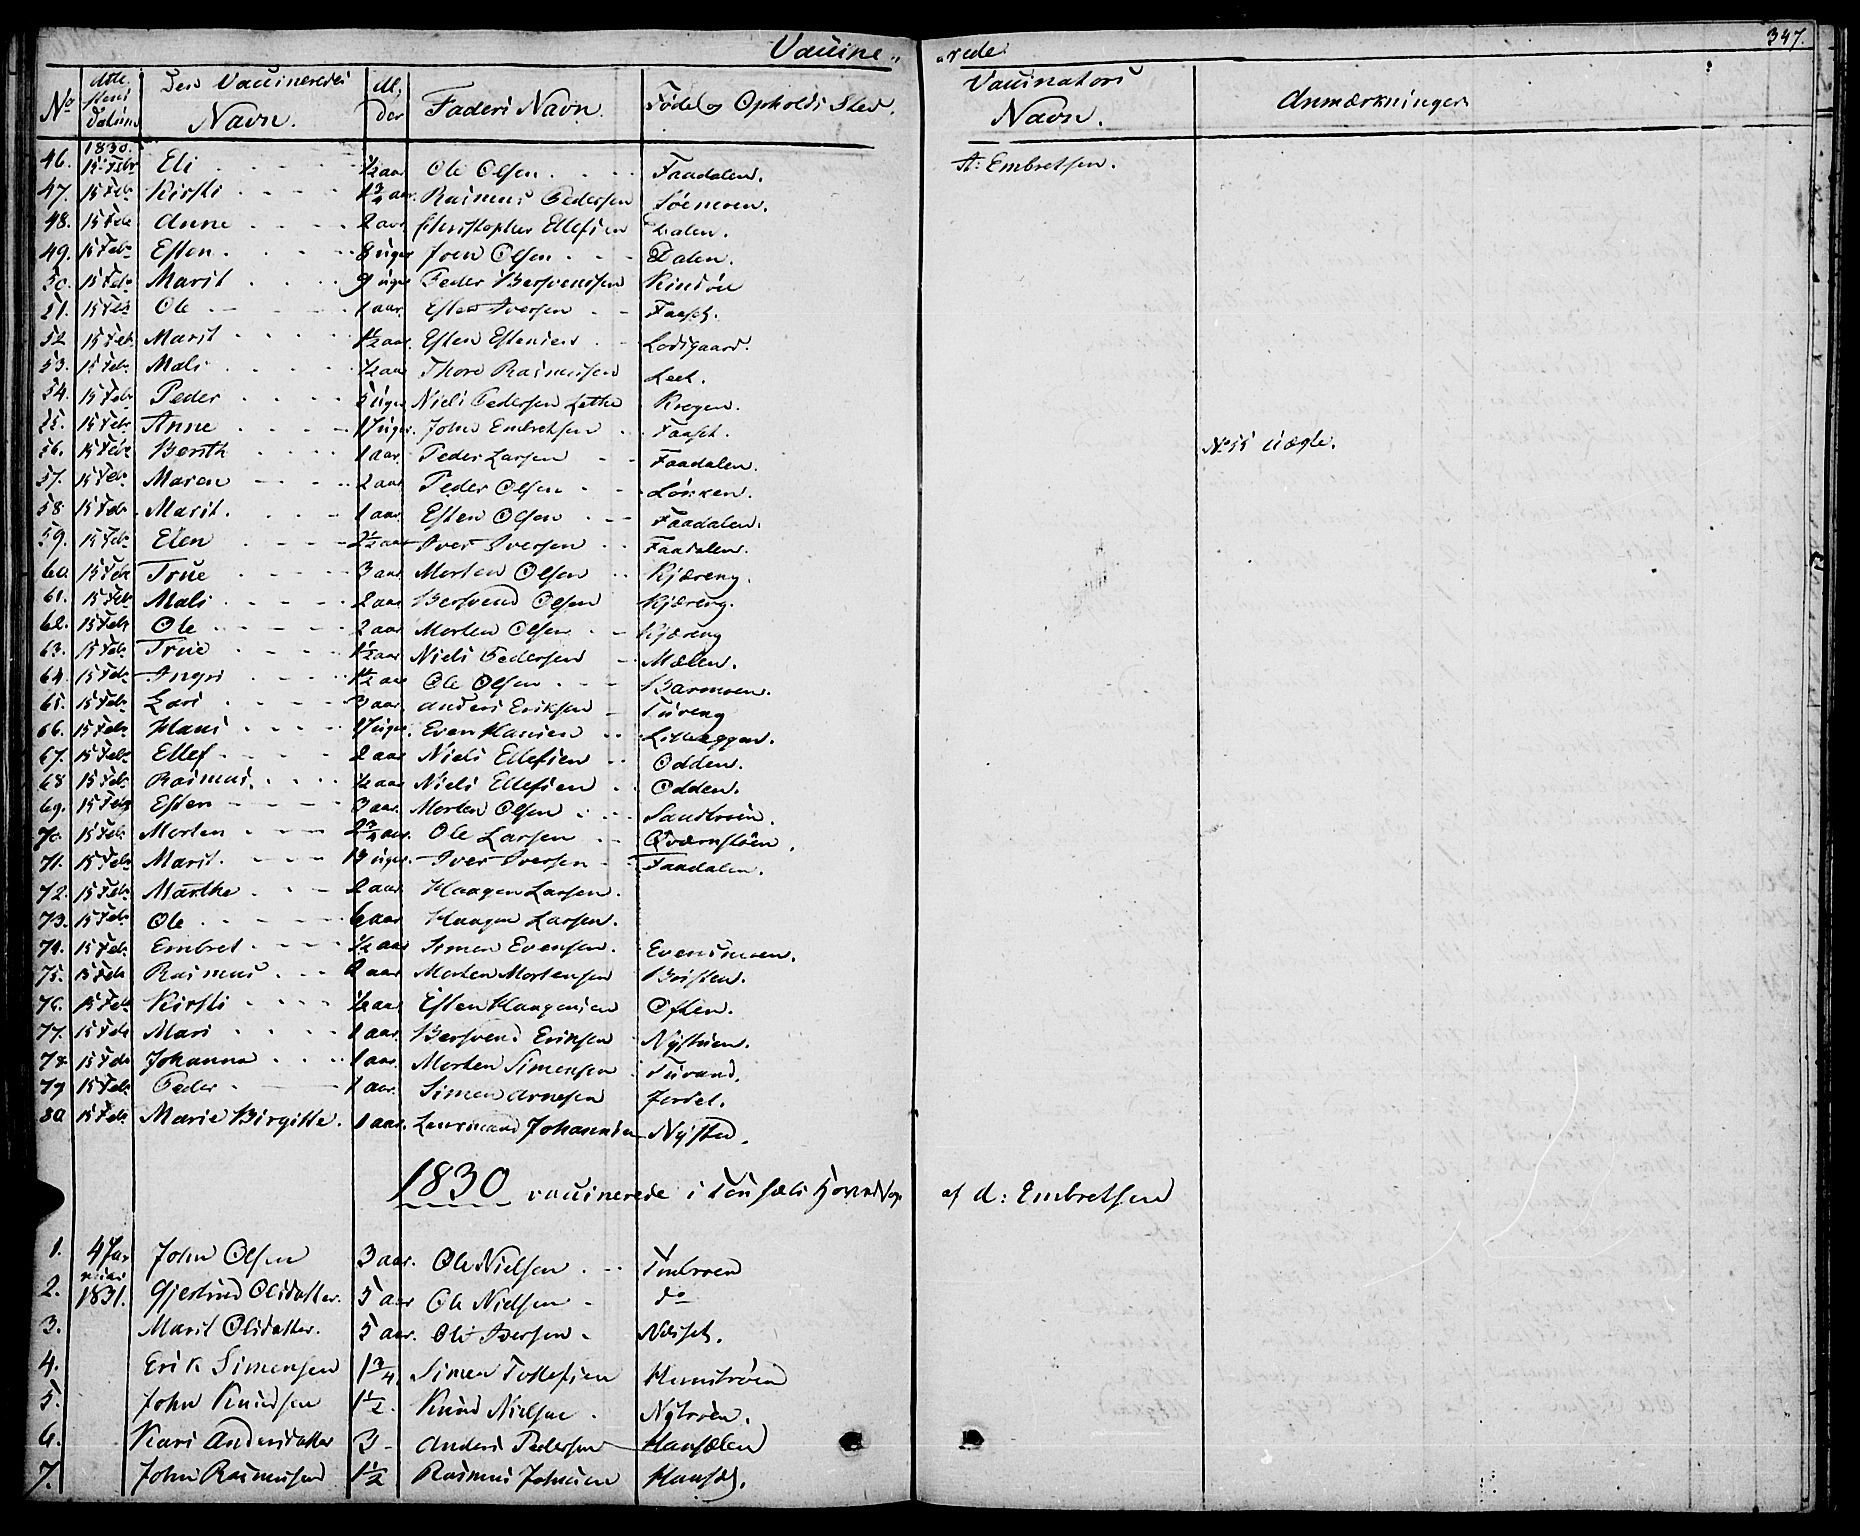 Vaccine- -rede 347.
No Attestens Datum Den Vaccineredes Navn. Alder Faders Navn. Føde og Opholds Sted. Vaccinators Navn. Anmærkninger
46. 1830. 15 Febr Eli ½ aar Ole Olsen. Faadalen. A: Embretsen.
47. 15 Feb. Kirsti 1¾ aar. Rasmus Pedersen Søemoen.
48. 15 Feb Anne 2 aar Christopher Ellefsen Dalen.
49. 15 Feb. Esten. 8 uger Joen Olsen. Dalen.
50. 15 Feb. Marit 9 uger Peder Bersvendsen
51. 15 Feb Ole 1 aar Esten Iversen Faaset.
52 15 Feb. Marit 1½ aar. Esten Estensen Lodsgaard.
53. 15 Feb. Mali ½ aar Thore Rasmusen Leet.
54. 15 Feb. Peder 5 uger Niels Pedersen Lethe Krogen.
55. 15 Feb Anne 17 uger. John Embretsen Faaset. No 55 uægte.
56. 15 Feb. Berith 1 aar. Peder Larsen Faadalen.
57. 15 Feb. Maren 2 aar Peder Olsen Løkken.
58 15 Feb. Marit. 1 aar. Esten Olsen Faadalen.
59. 15 Feb. Elen 2½ aar Iver Iversen Faadalen.
60. 15 Feb Trüe 3 aar Morten Olsen Kjæreng.
61. 15 Feb Mali 2 aar Bersvend Olsen Kjæreng.
62. 15 Feb Ole 2 aar Morten Olsen Kjæreng
63. 15 Feb. Trüe 1½ aar Niels Pedersen Mælen.
64. 15 Feb. Ingri 1½ aar Ole Olsen Barmoen.
65. 15 Feb. Lari 3 aar Anders Eriksen Tüveng
66. 15 Feb. Hans 17 uger. Even Hansen
67. 15 Feb. Ellef 2 aar Niels Ellefsen Odden.
68 15 Feb. Rasmus. ½ aar Niels Ellefsen Odden.
69. 15 Feb Esten 3 aar. Morten Olsen Sandtrøen.
70. 15 Feb. Morten 2¾ aar Ole Larsen Qværnsløen.
71. 15 Feb. Marit. 13 uger. Iver Iversen Faadalen.
72. 15 Feb. Marthe 2 aar Haagen Larsen.
73. 15 Feb. Ole 6 aar Haagen Larsen.
74. 15 Feb. Embret ½ aar Simen Evensen. Evensmoen.
75. 15 Feb Rasmus 2 aar Morten Mortensen
76. 15 Feb Kirsti ½ aar Esten Haagensen
77. 15 Feb Mari 1 aar. Bersvend Eriksen Nystuen.
78. 15 Feb Johanna 1 aar. Morten Simensen Tüvand.
79 15 Feb. Peder 1 aar. Simen Arnesen Jordet.
80 15 Feb. Marie Birgitte. 1 aar. Lensmand Johannsen Nysted.
1830 vaccinerede i Tønsæts Hovedsogn af A: Embretsen
1. 4 Januar 1831. John Olsen 3 aar. Ole Nielsen
2. Gjertrud Olsdatter. 5 aar Ole Nielsen do
3. Marit Olsdatter. 5 aar. Ole Iversen Næsset.
4. Erik Simensen 1¾. Simen Tollefsen
5. John Knudsen 1½. Knud Nielsen Nytrøen.
6. Kari Andersdatter 3 Anders Pedersen
7. John Rasmusen 1½ Rasmus Johnsen